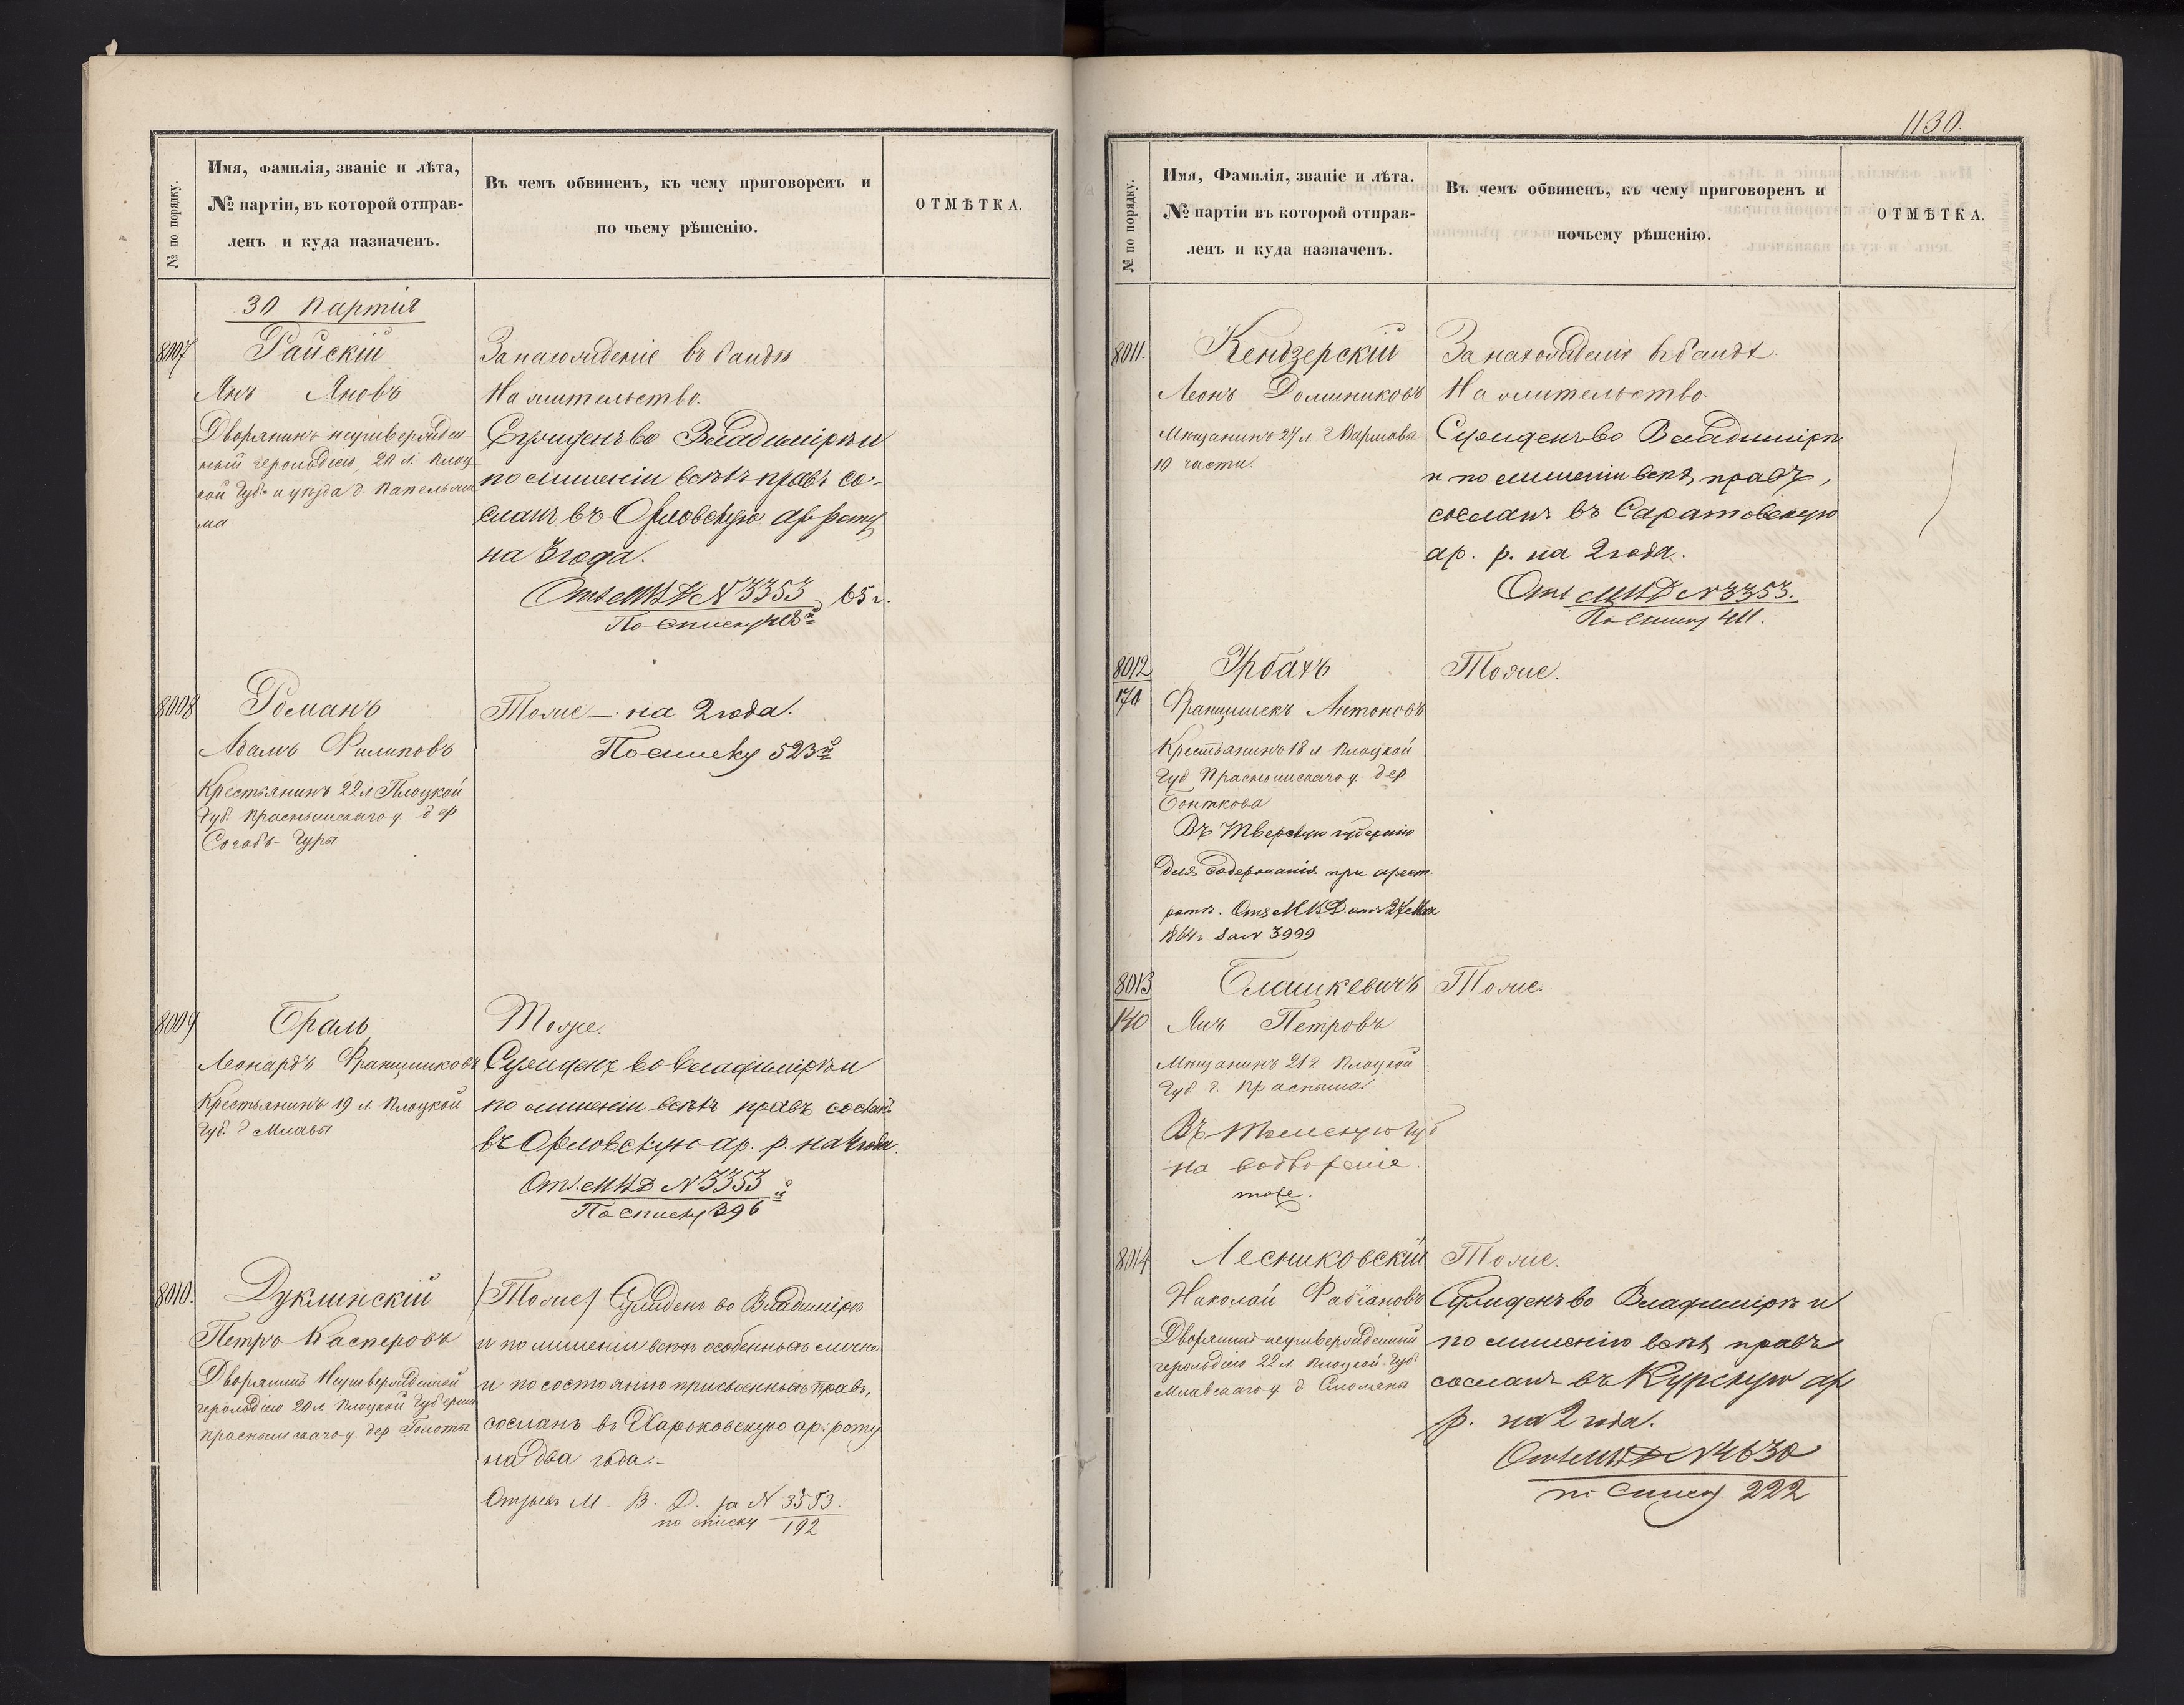 № по порядку.
Имя, фамилія, званіе и лѣта,
№ партіи, въ которой отправ-
ленъ и куда назначенъ.
Въ чемъ обвиненъ, къ чему приговоренъ и
по чьему рѣшенію.
ОТМѢТКА.
30 партія
8007
Райскій
Янъ Яновъ
Дворянинъ неутвержден-
ный герольдіею, 20 л. Плоц-
кой Губ. и уѣзда д.
ма
За нахожденіе въ бандѣ
На жительство.
Сужденъ во Владимірѣ и
по лишеніи всѣхъ правъ со-
сланъ въ Орловскую ар. роту
на 3 года.
Отз МВД N 3353 65 г.
По списку
8008
Романъ
Адамъ Филиповъ
Крестьянинъ 22 л. Плоцкой
Губ. Праснышскаго у. дер
Гуры
Тоже — на 2 года.
По списку 523й
8009
Браль
Леонардъ Францишковъ
Крестьянинъ 19 л. Плоцкой
Губ. г Млавы
Тоже.
Сужденъ во Владимірѣ и
по лишеніи всѣхъ правъ сосланъ
въ Орловскую ар. р. на года.
Отз. МВД N 3353
По списку 396й
8010.
Дуклинскій
Петръ Касперовъ
Дворянинъ Неутвержденной
герольдіею 20 л Плоцкой Губерніи
Праснышскаго у. дер Голоты
(Тоже) Сужденъ во Владимірѣ
и по лишеніи всѣхъ особенныхъ лично
и по состоянію присвоенныхъ правъ,
сосланъ въ Харьковскую ар: роту
на два года.-
Отзывъ М. В. Д. за N 3353
по списку 192
1130.
№ по порядку.
Имя, Фамилія, званіе и лѣта.
№ партіи въ которой отправ-
ленъ и куда назначенъ.
Въ чемъ обвиненъ, къ чему приговоренъ и
почьему рѣшенію.
ОТМѢТКА.
8011.
Кендзерскій
Леонъ Доминиковъ
Мѣщанинъ 27 л. г Варшавы
10 части.
За нахожденіе въ бандѣ.
На жительство.
Сужденъ во Владимірѣ
и по лишеніи всѣхъ правъ,
сосланъ въ Саратовскую
ар. р. на 2 года.
Отз МВД N 3353.
По списку 411.
8012
170
Урбахъ
Францишекъ Антоновъ
Крестьянинъ 18 л. Плоцкой
Губ Праснышскаго у дер
Бонткова
Въ Тверскую губернію
для содержанія при арест.
ротѣ. Отз МВД отъ 27 Мая
1864 г за N 3999
Тоже.
8013
140
Блашкевичъ
Янъ Петровъ
Мѣщанинъ 21 г. Плоцкой
Губ г. Прасныша
Въ Томскую губ
на водвореніе
тоже.
Тоже.
8014
Лесниковскій
Николай Фабіановъ
Дворянинъ неутвержденный
герольдіею 22 л. Плоцкой Губ.
Млавскаго у д Сломяны
Тоже.
Сужденъ во Владимірѣ и
по лишенію всѣхъ правъ
сосланъ въ Курскую ар
р. на 2 года.
Отз МВД N 4630
по списку 222